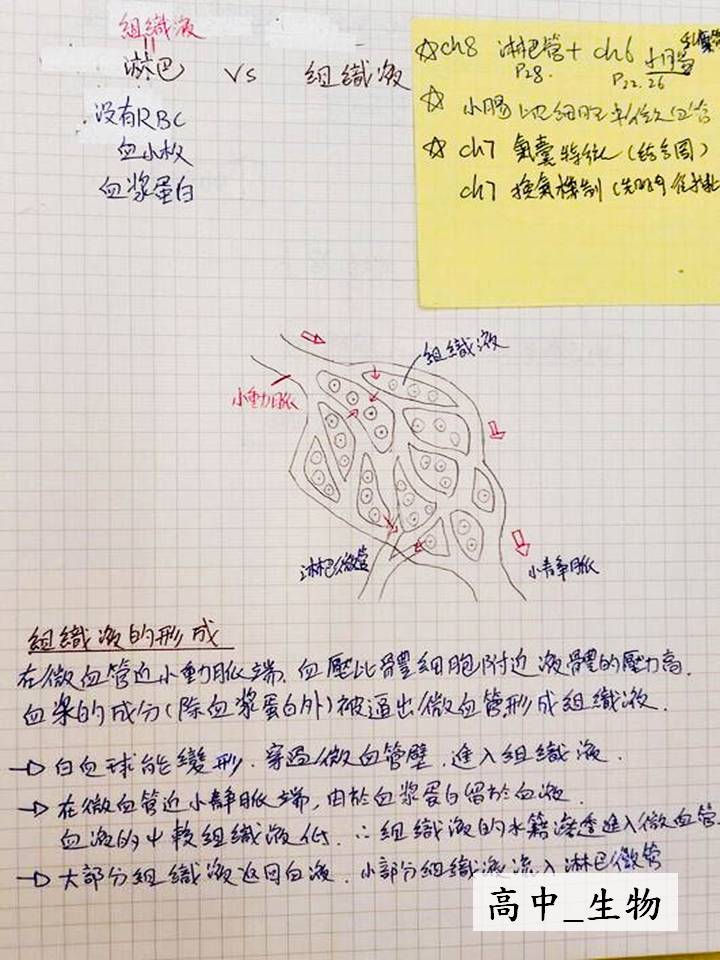 組織液
淋巴 VS 組織液
沒有RBC
血小板
血漿蛋白
☆ch8 淋巴管+ ch6 小腸
P28. P22.26
☆ 小腸
☆ ch7 氣囊特徵(結合圖)
ch7 換氣機制
組織液
小動脈
淋巴微管
小靜脈
組織液的形成
在微血管近小動脈端,血壓比體細胞附近液體的壓力高.
血漿的成分(除血漿蛋白外)被逼出微血管形成組織液.
→白血球能變形.穿過微血管壁.進入組織液.
→在微血管近小靜脈端,由於血漿蛋白留於血液.
血液的Ψ較組織液低.∴組織液的水籍滲透進入微血管.
→大部分組織液返回血液.小部分組織液流入淋巴微管
高中_生物